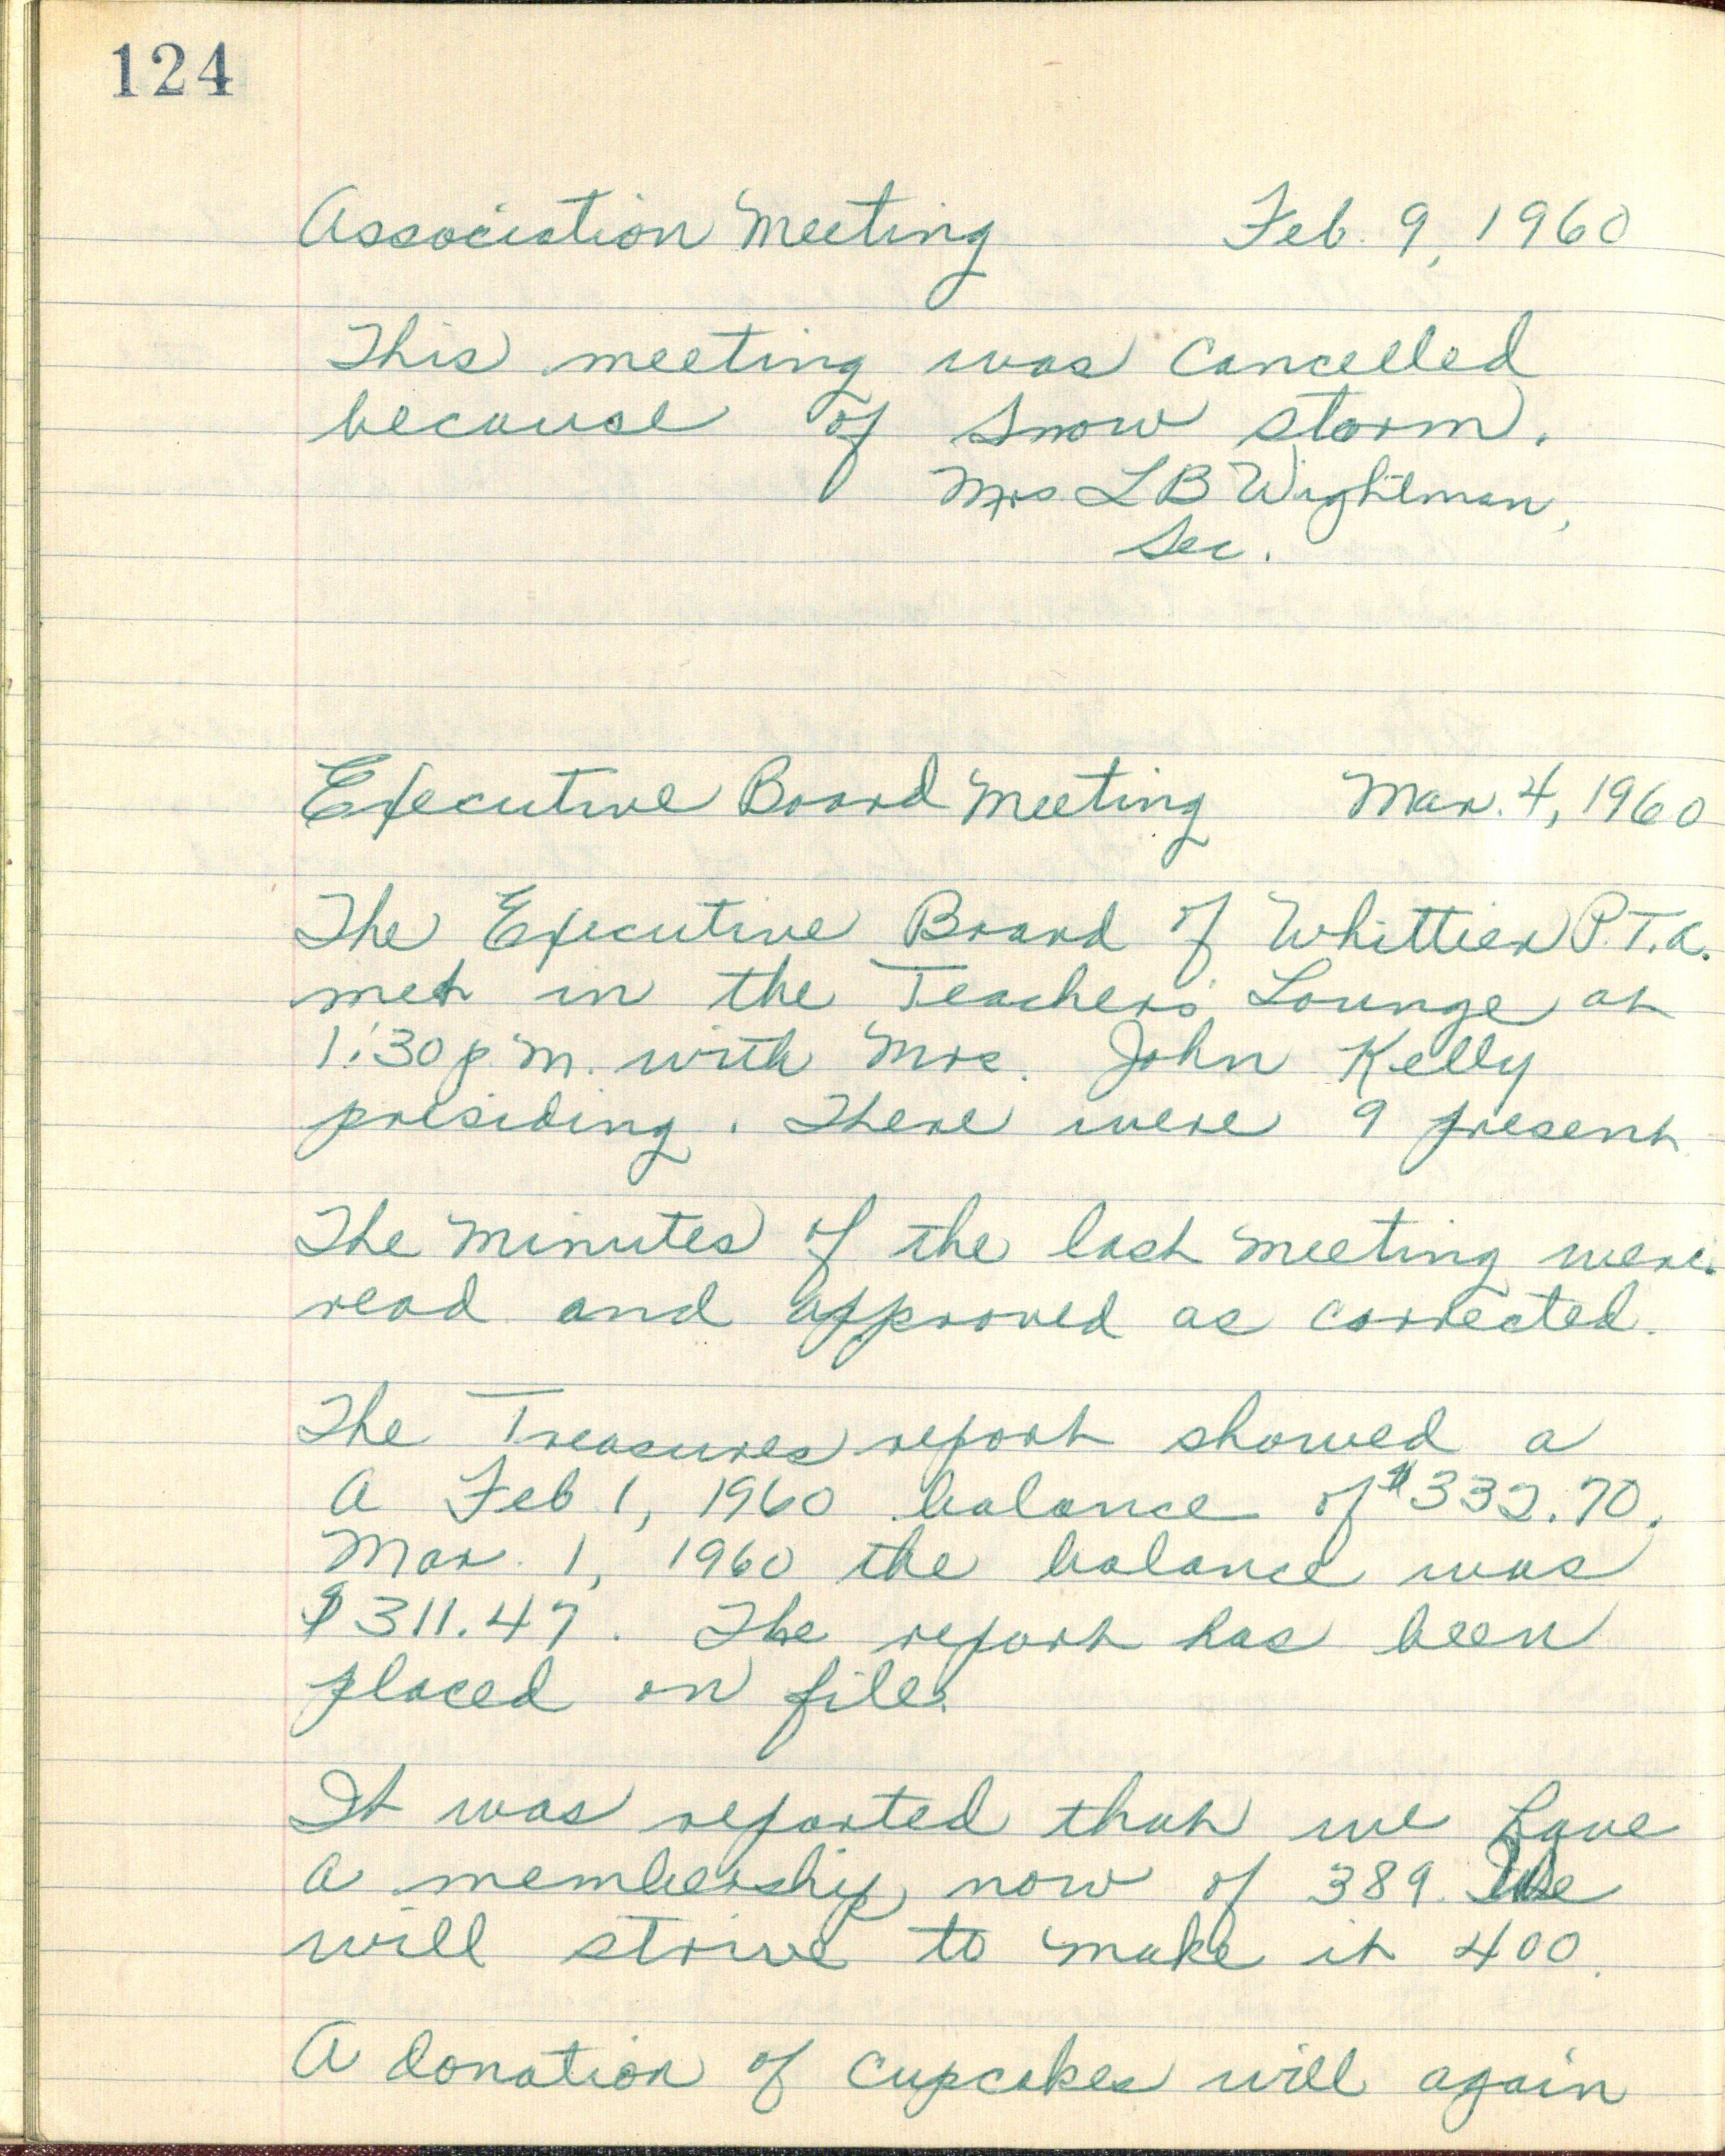 124
Association Meeting Feb. 9, 1960
This meeting was cancelled
because of snow storm.
Mrs L B Wightman,
Sec.
Executive Board Meeting Mar. 4, 1960
The Executive Board of Whittier P.T.A.
met in the Teachers' Lounge at
1:30 p.m. with Mrs. John Kelly
presiding. There were 9 present
The minutes of the last meeting were
read and approved as corrected.
The Treasures report showed a
a Feb 1, 1960 balance of $332.70.
Mar. 1, 1960 the balance was
$311.47. The report has been
placed on file.
It was reported that we have
a membership now of 389. We
will strive to make it 400.
A donation of cupcakes will again